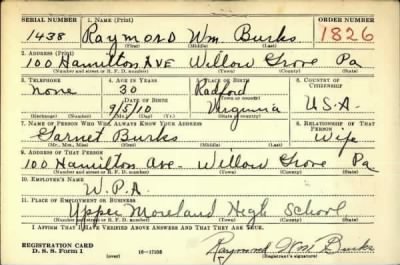 SERIAL NUMBER 1. NAME (Print) ORDER NUMBER
1438 Raymond Wm. Burks 1826
(First) (Middle) (Last)
2. ADDRESS (Print)
100 Hamilton AVE Willow Grove Pa
(Number and street or R. F. D. number) (Town) (County) (State)
3. TELEPHONE 4. AGE IN YEARS 5. PLACE OF BIRTH 6. COUNTRY OF CITIZENSHIP
none 30 Radford
DATE OF BIRTH (Town or county)
9/5/10 Virginia U.S.A.
(Exchange) (Number) (Mo.) (Day) (Yr.) (State or country)
7. NAME OF PERSON WHO WILL ALWAYS KNOW YOUR ADDRESS 8. RELATIONSHIP OF THAT PERSON
Garnet Burks Wife
(Mr., Mrs., Miss) (First) (Middle) (Last)
9. ADDRESS OF THAT PERSON
100 Hamilton Ave. Willow Grove Pa
(Number and street or R. F. D. number) (Town) (County) (State)
10. EMPLOYER'S NAME
W.P.A.
11. PLACE OF EMPLOYMENT OR BUSINESS
Upper Moreland High School
(Number and street or R. F. D. number) (Town) (County) (State)
I AFFIRM THAT I HAVE VERIFIED ABOVE ANSWERS AND THAT THEY ARE TRUE.
REGISTRATION CARD
D. S. S. Form 1 (over) 16-17105 Raymond Wm Burks
(Registrant's signature)